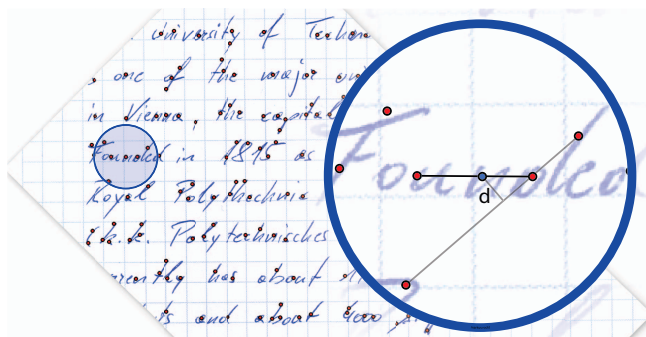 University of Techn
one of the major uni
in Vienna, the capital
Founded in 1815 as
Royal
(k.k. Polytechnisches
rrently has about
ts and about 4000
Founded
d